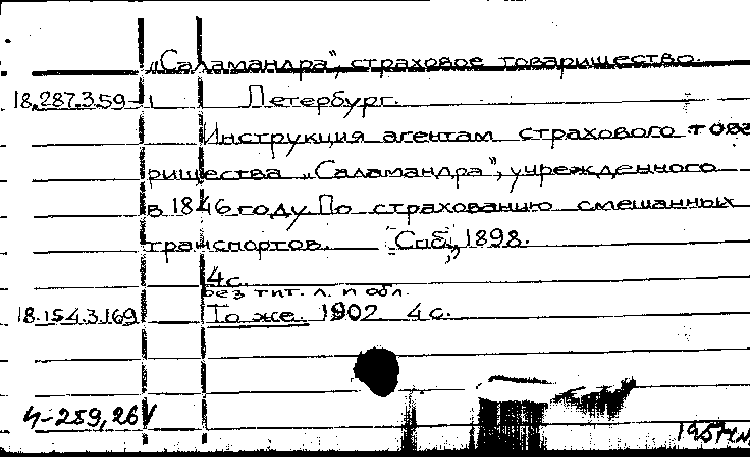 „Саламандра", страховое товарищество.
18.287.3.59- Петербург.
Инструкция агентам страхового това
рищества „Саламандра", учрежденного
в 1846 году По страхованию смешанных
транспортов. Спб., 1898.
4 с.
без тит. л. и обл.
18.154.3.169 То же. 1902 4 с.
И-259,26